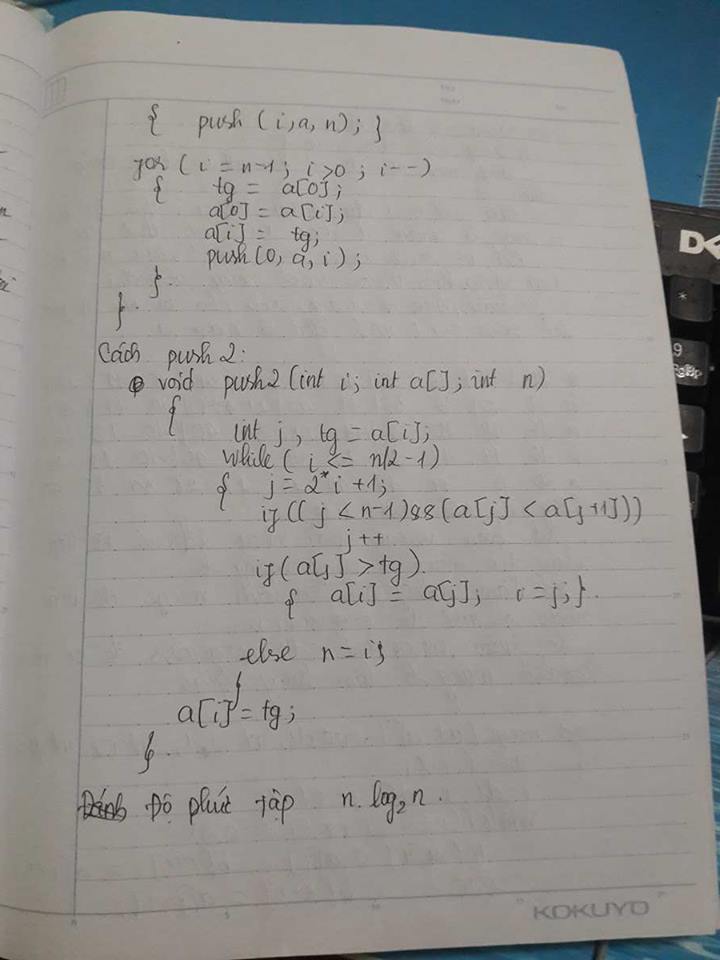 { push (i, a, n); }
for (i = n-1; i>0; i--)
{ tg = a[0];
a[0] = a[i];
a[i] = tg;
push(0, a, i);
}.
}.
Cách push 2:
void push2 (int i; int a[]; int n)
{
int j, tg = a[i];
while ( i <= n/2-1)
{ j = 2*i +1;
if(( j < n-1)&&(a[j] < a[j+1]))
j++
if(a[j] > tg).
{ a[i] = a[j]; i=j;}.
else n = i;
}
a[i] = tg;
}.
Đánh Độ phức tạp n. log₂n.
KOKUYO
DE
*
9